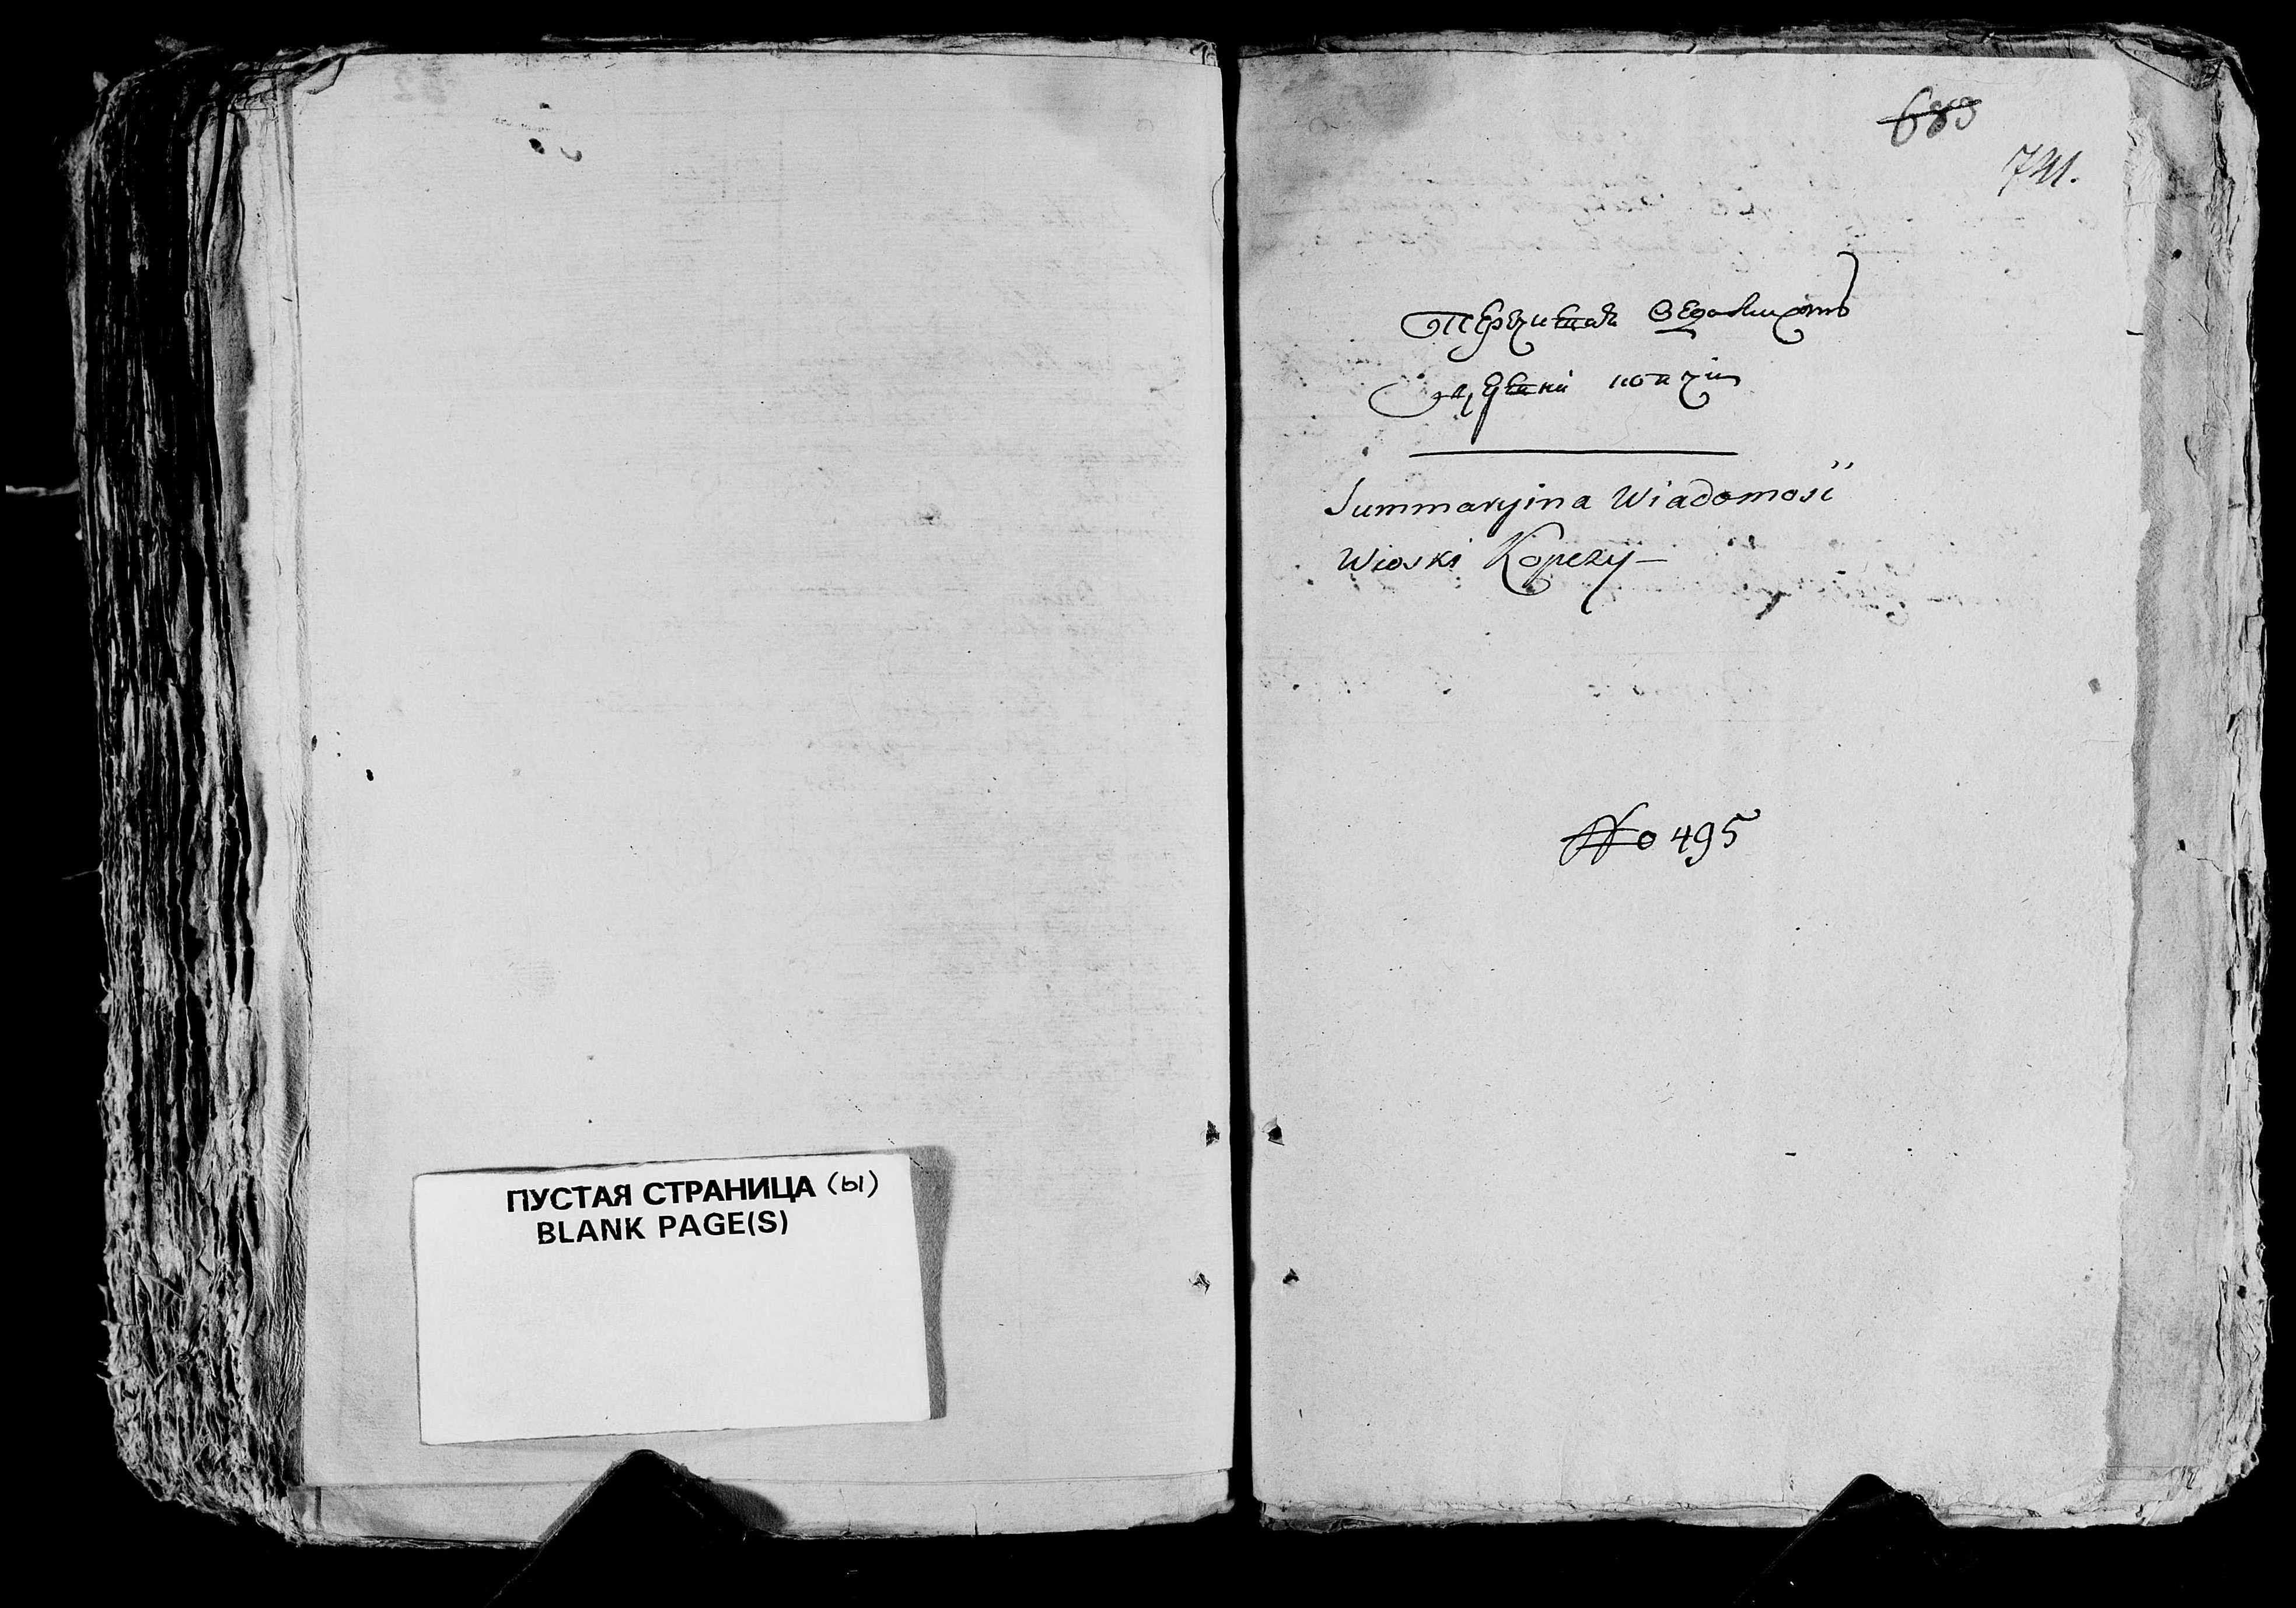 ПУСТАЯ СТРАНИЦА (ы)
BLANK PAGE(S)
689
741.
Перечнѣвая ведомость
деревни копчи
Summaryina Wiadomość
Wioski Kopczy —
No 495